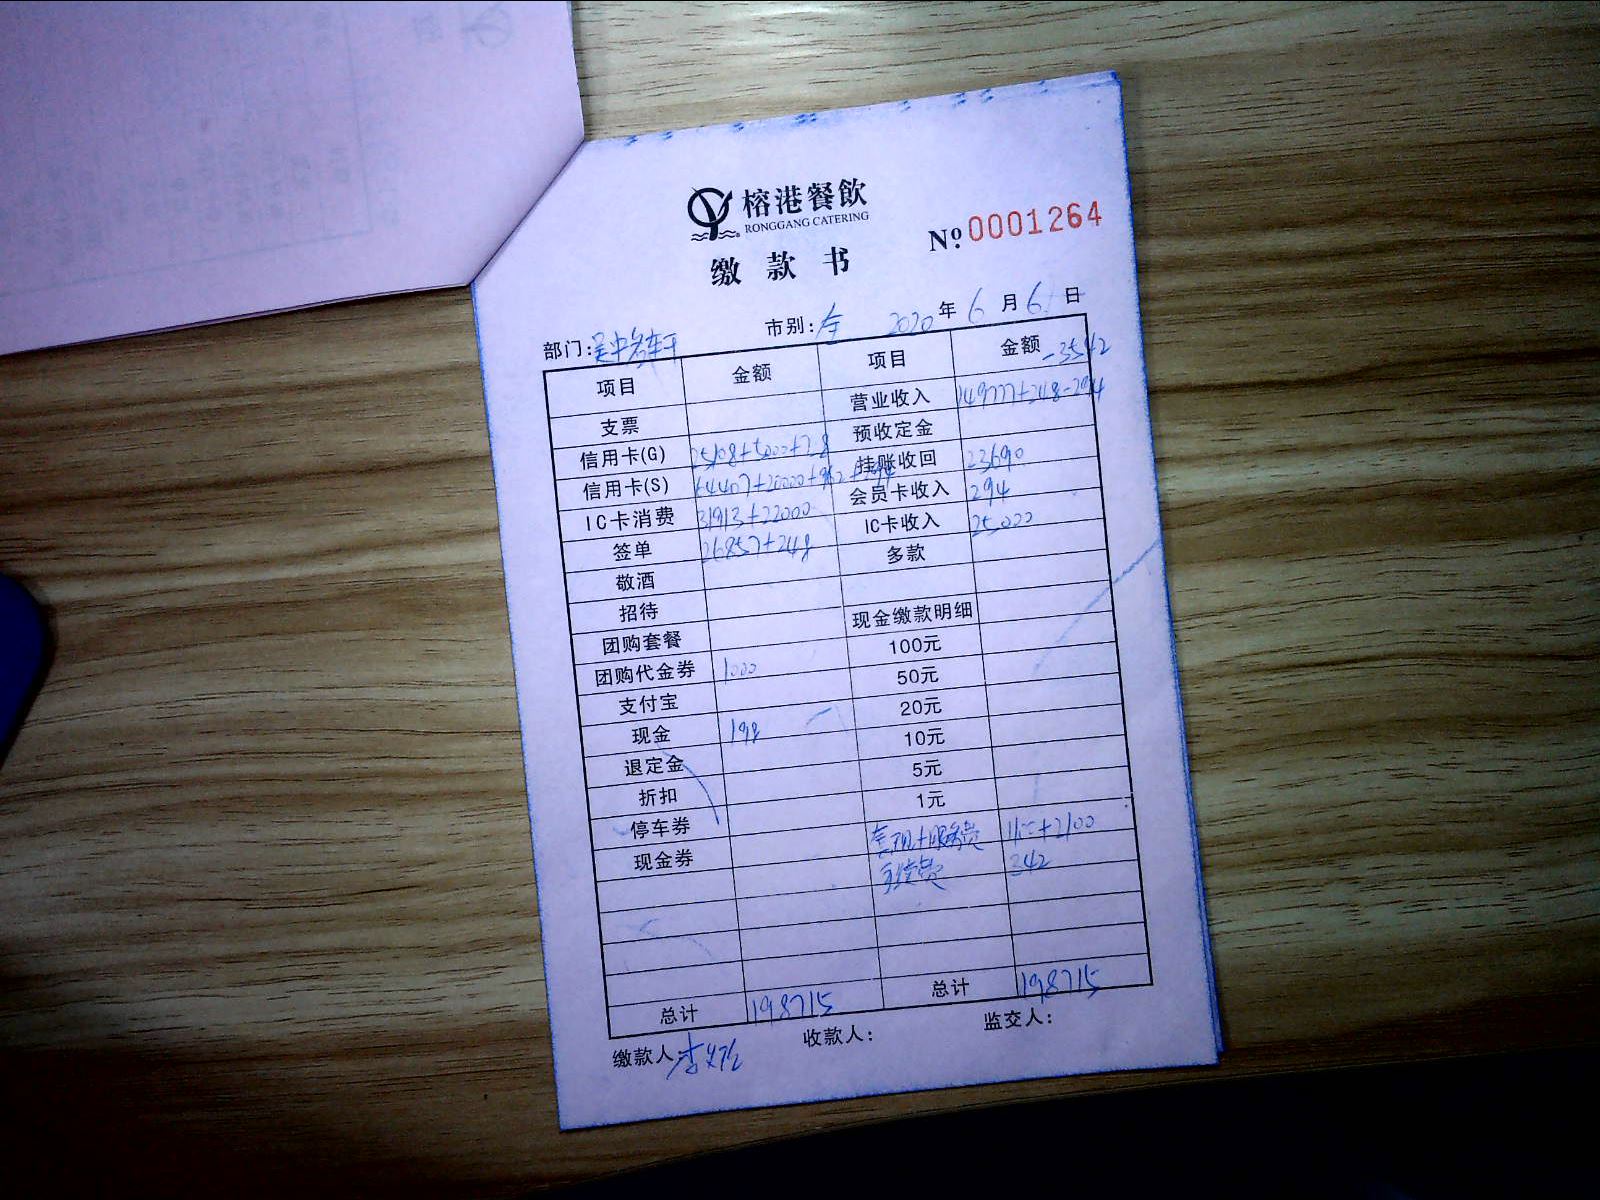 榕港餐飲
RONGGANG CATERING
№ 0001264
缴款书
部门: 市别:全 2020年6月6日
项目 金额 项目 金额 -3542
支票 营业收入 149777+248-294
信用卡(G) 预收定金
信用卡(S) 挂账收回 23690
IC卡消费 31913+22000 会员卡收入 294
签单 26857+248 IC卡收入 25000
敬酒 多款
招待
团购套餐 现金缴款明细
团购代金券 1000 100元
支付宝 50元
现金 198 20元
退定金 10元
折扣 5元
停车券 1元
现金券 套现+服务费 +2100
手续费 342
总计 198715 总计 198715
缴款人: 收款人: 监交人: